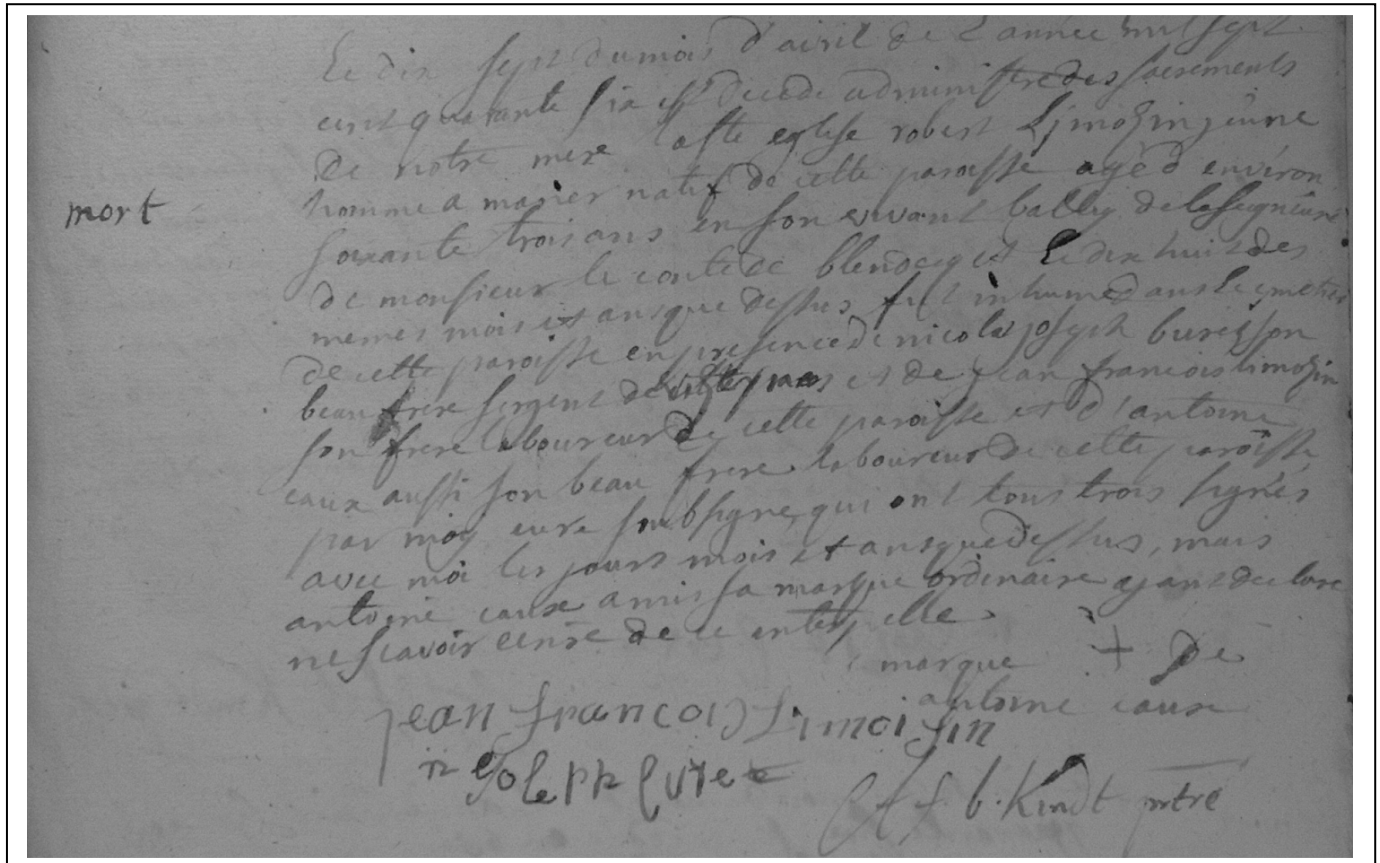 Le dix sept du mois d'avril de l'année mil sept
cent quarante six est decede administre des sacrements
de notre mere l'eglise robert Limozin jeune
homme a marier natif de cette paroisse agé d'environ
soixante trois ans en son vivant bally de la seigneurie
de monsieur le conte de blendecq et le dix huit des
memes mois et ans que dessus fut inhumé dans le cymetiere
mort
de cette paroisse en presence de nicolas joseph
beau frere sergent de et de jean francois limozin
son frere laboureur de cette paroisse et d'antoine
caux aussi son beau frere laboureur de cette paroisse
par moy cure soubsigne, qui ont tous trois signés
avec moi les jours mois et ans que dessus, mais
antoine caux a mis sa marque ordinaire ayant declare
ne scavoir de ce enterpelle
marque + De
antoine caux
jean francois Limoisin
n Joseph
b. Kindt ptre